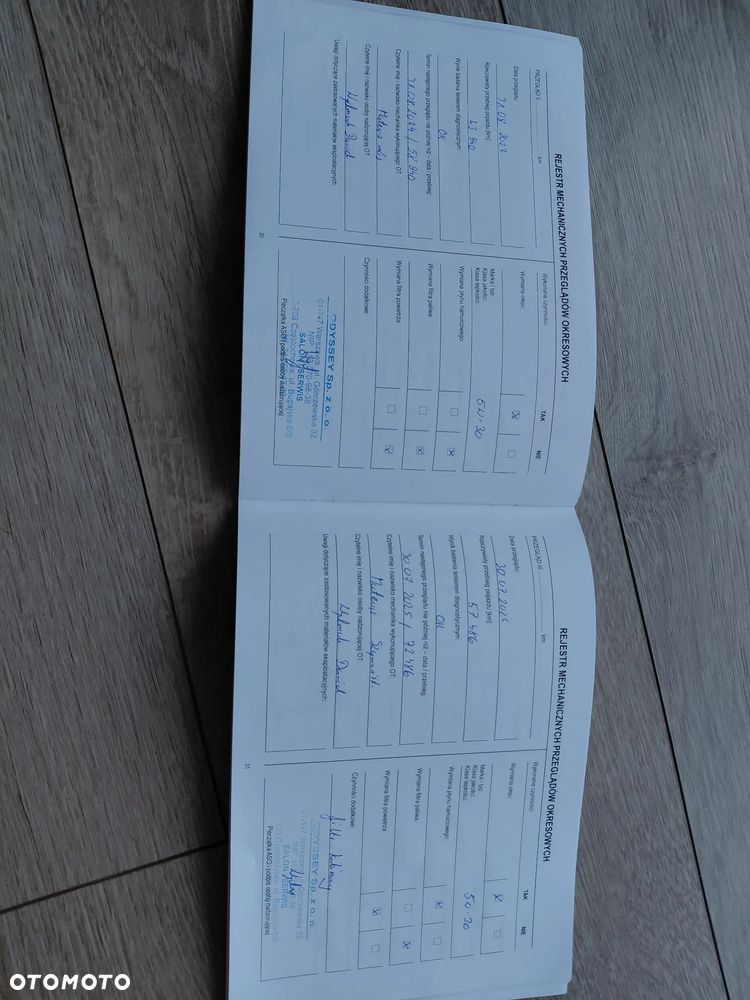 REJESTR MECHANICZNYCH PRZEGLĄDÓW OKRESOWYCH
PRZEGLĄD II km
Data przeglądu:
31.08.2023
Rzeczywisty przebieg pojazdu [km]:
43 940
Wynik badania testerem diagnostycznym:
OK
Termin następnego przeglądu nie później niż – data i przebieg:
31.08.2024 / 58 940
Czytelne imię i nazwisko mechanika wykonującego OT:
Mateusz
Czytelne imię i nazwisko osoby nadzorującej OT:
Dawid
Uwagi dotyczące zastosowanych materiałów eksploatacyjnych:
Wykonane czynności: TAK NIE
Wymiana oleju:
Marka i typ:
Klasa jakości:
Klasa lepkości:
5W-30
Wymiana płynu hamulcowego:
Wymiana filtra paliwa:
Wymiana filtra powietrza:
Czynności dodatkowe:
ODYSSEY Sp. z o. o.
01-147 Warszawa, ul. Górczewska 32
NIP:
SALON/SERWIS
Częstochowa, ul. Bugajska
Pieczątka ASO i podpis osoby nadzorującej
30
REJESTR MECHANICZNYCH PRZEGLĄDÓW OKRESOWYCH
PRZEGLĄD III km
Data przeglądu:
30.07.2024
Rzeczywisty przebieg pojazdu [km]:
57 486
Wynik badania testerem diagnostycznym:
OK
Termin następnego przeglądu nie później niż – data i przebieg:
30.07.2025 / 72 486
Czytelne imię i nazwisko mechanika wykonującego OT:
Mateusz
Czytelne imię i nazwisko osoby nadzorującej OT:
Dawid
Uwagi dotyczące zastosowanych materiałów eksploatacyjnych:
Wykonane czynności: TAK NIE
Wymiana oleju:
Marka i typ:
Klasa jakości:
Klasa lepkości:
5W-30
Wymiana płynu hamulcowego:
Wymiana filtra paliwa:
Wymiana filtra powietrza:
Czynności dodatkowe:
filtr kabinowy
ODYSSEY Sp. z o. o.
01-147 Warszawa, ul. Górczewska 32
NIP:
SALON/SERWIS
Pieczątka ASO i podpis osoby nadzorującej
31
OTOMOTO